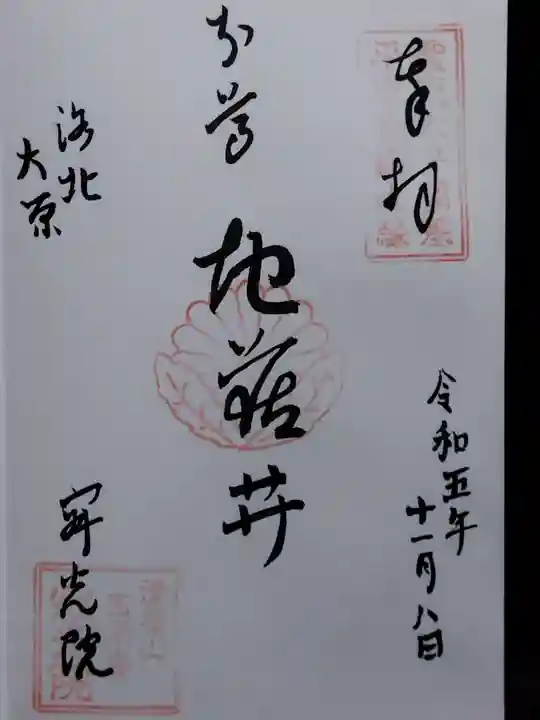 奉拝
令和五年
十一月八日
本尊
地蔵𦬇
洛北
大原
寂光院